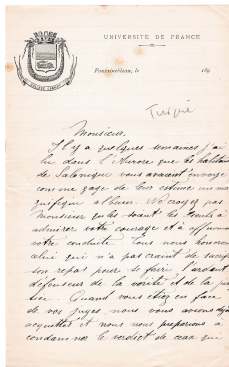 UNIVERSITÉ DE FRANCE
COLLÈGE CARNOT
Fontainebleau, le 189
Turquie
Monsieur,
Il y a quelques semaines j'ai
lu dans l'Aurore que les habitants
de Salonique vous avaient envoyé
comme gage de leur estime un ma
gnifique album. Ne croyez pas
Monsieur qu'ils soient les seuls à
admirer votre courage et à affirmer
votre conduite. Tous nous honorons
celui qui n'a pas craint de sacrifier
son repos pour se faire l'ardent
défenseur de la vérité et de la jus
tice. Quand vous étiez en face
de vos juges nous vous avions déjà
acquitté et nous nous préparions à
condamner le verdict de ceux qui